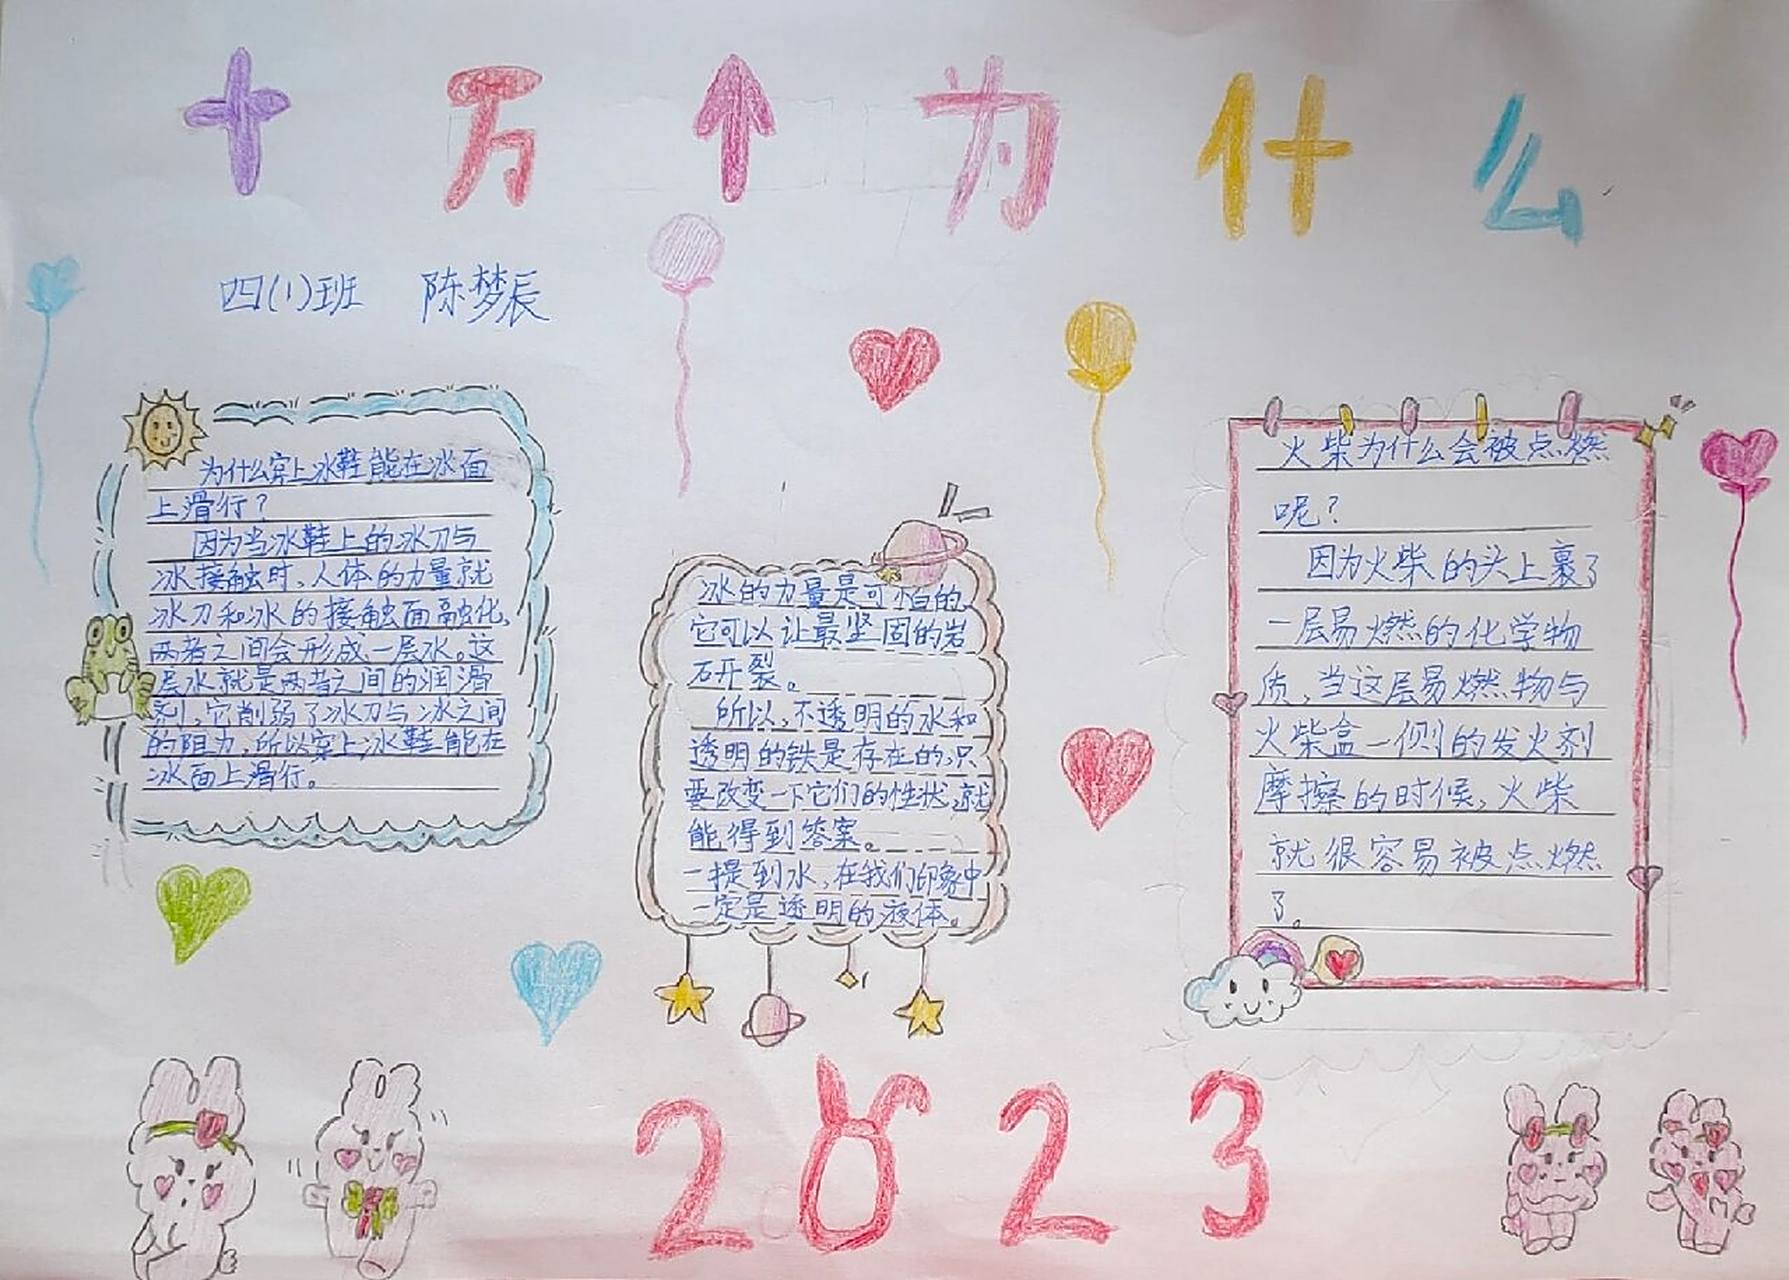 十万个为什么
四(1)班 陈梦辰
为什么穿上冰鞋能在冰面
上滑行?
因为当冰鞋上的冰刀与
冰接触时,人体的力量就
冰刀和冰的接触面融化,
两者之间会形成一层水。这
层水就是两者之间的润滑
剂,它削弱了冰刀与冰之间
的阻力,所以穿上冰鞋能在
冰面上滑行。
冰的力量是可怕的,
它可以让最坚固的岩
石开裂。
所以,不透明的水和
透明的铁是存在的,只
要改变一下它们的性状,就
能得到答案。
一提到水,在我们印象中
一定是透明的液体。
火柴为什么会被点燃
呢?
因为火柴的头上裹了
一层易燃的化学物
质,当这层易燃物与
火柴盒一侧的发火剂
摩擦的时候,火柴
就很容易被点燃
了。
2023